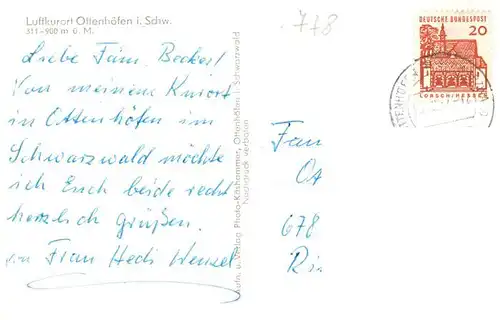 Luftkurort Ottenhöfen i. Schw.
311-900 m ü. M.
Liebe Fam. Becker!
Von meinem Kurort
in Ottenhöfen im
Schwarzwald möchte
ich Euch beide recht
herzlich grüßen.
von Frau Hedi Wenzel
Ottenhöfen i. Schwarzwald
Nachdruck verboten
778
DEUTSCHE BUNDESPOST
20
LORSCH/HESSEN
Fam
678